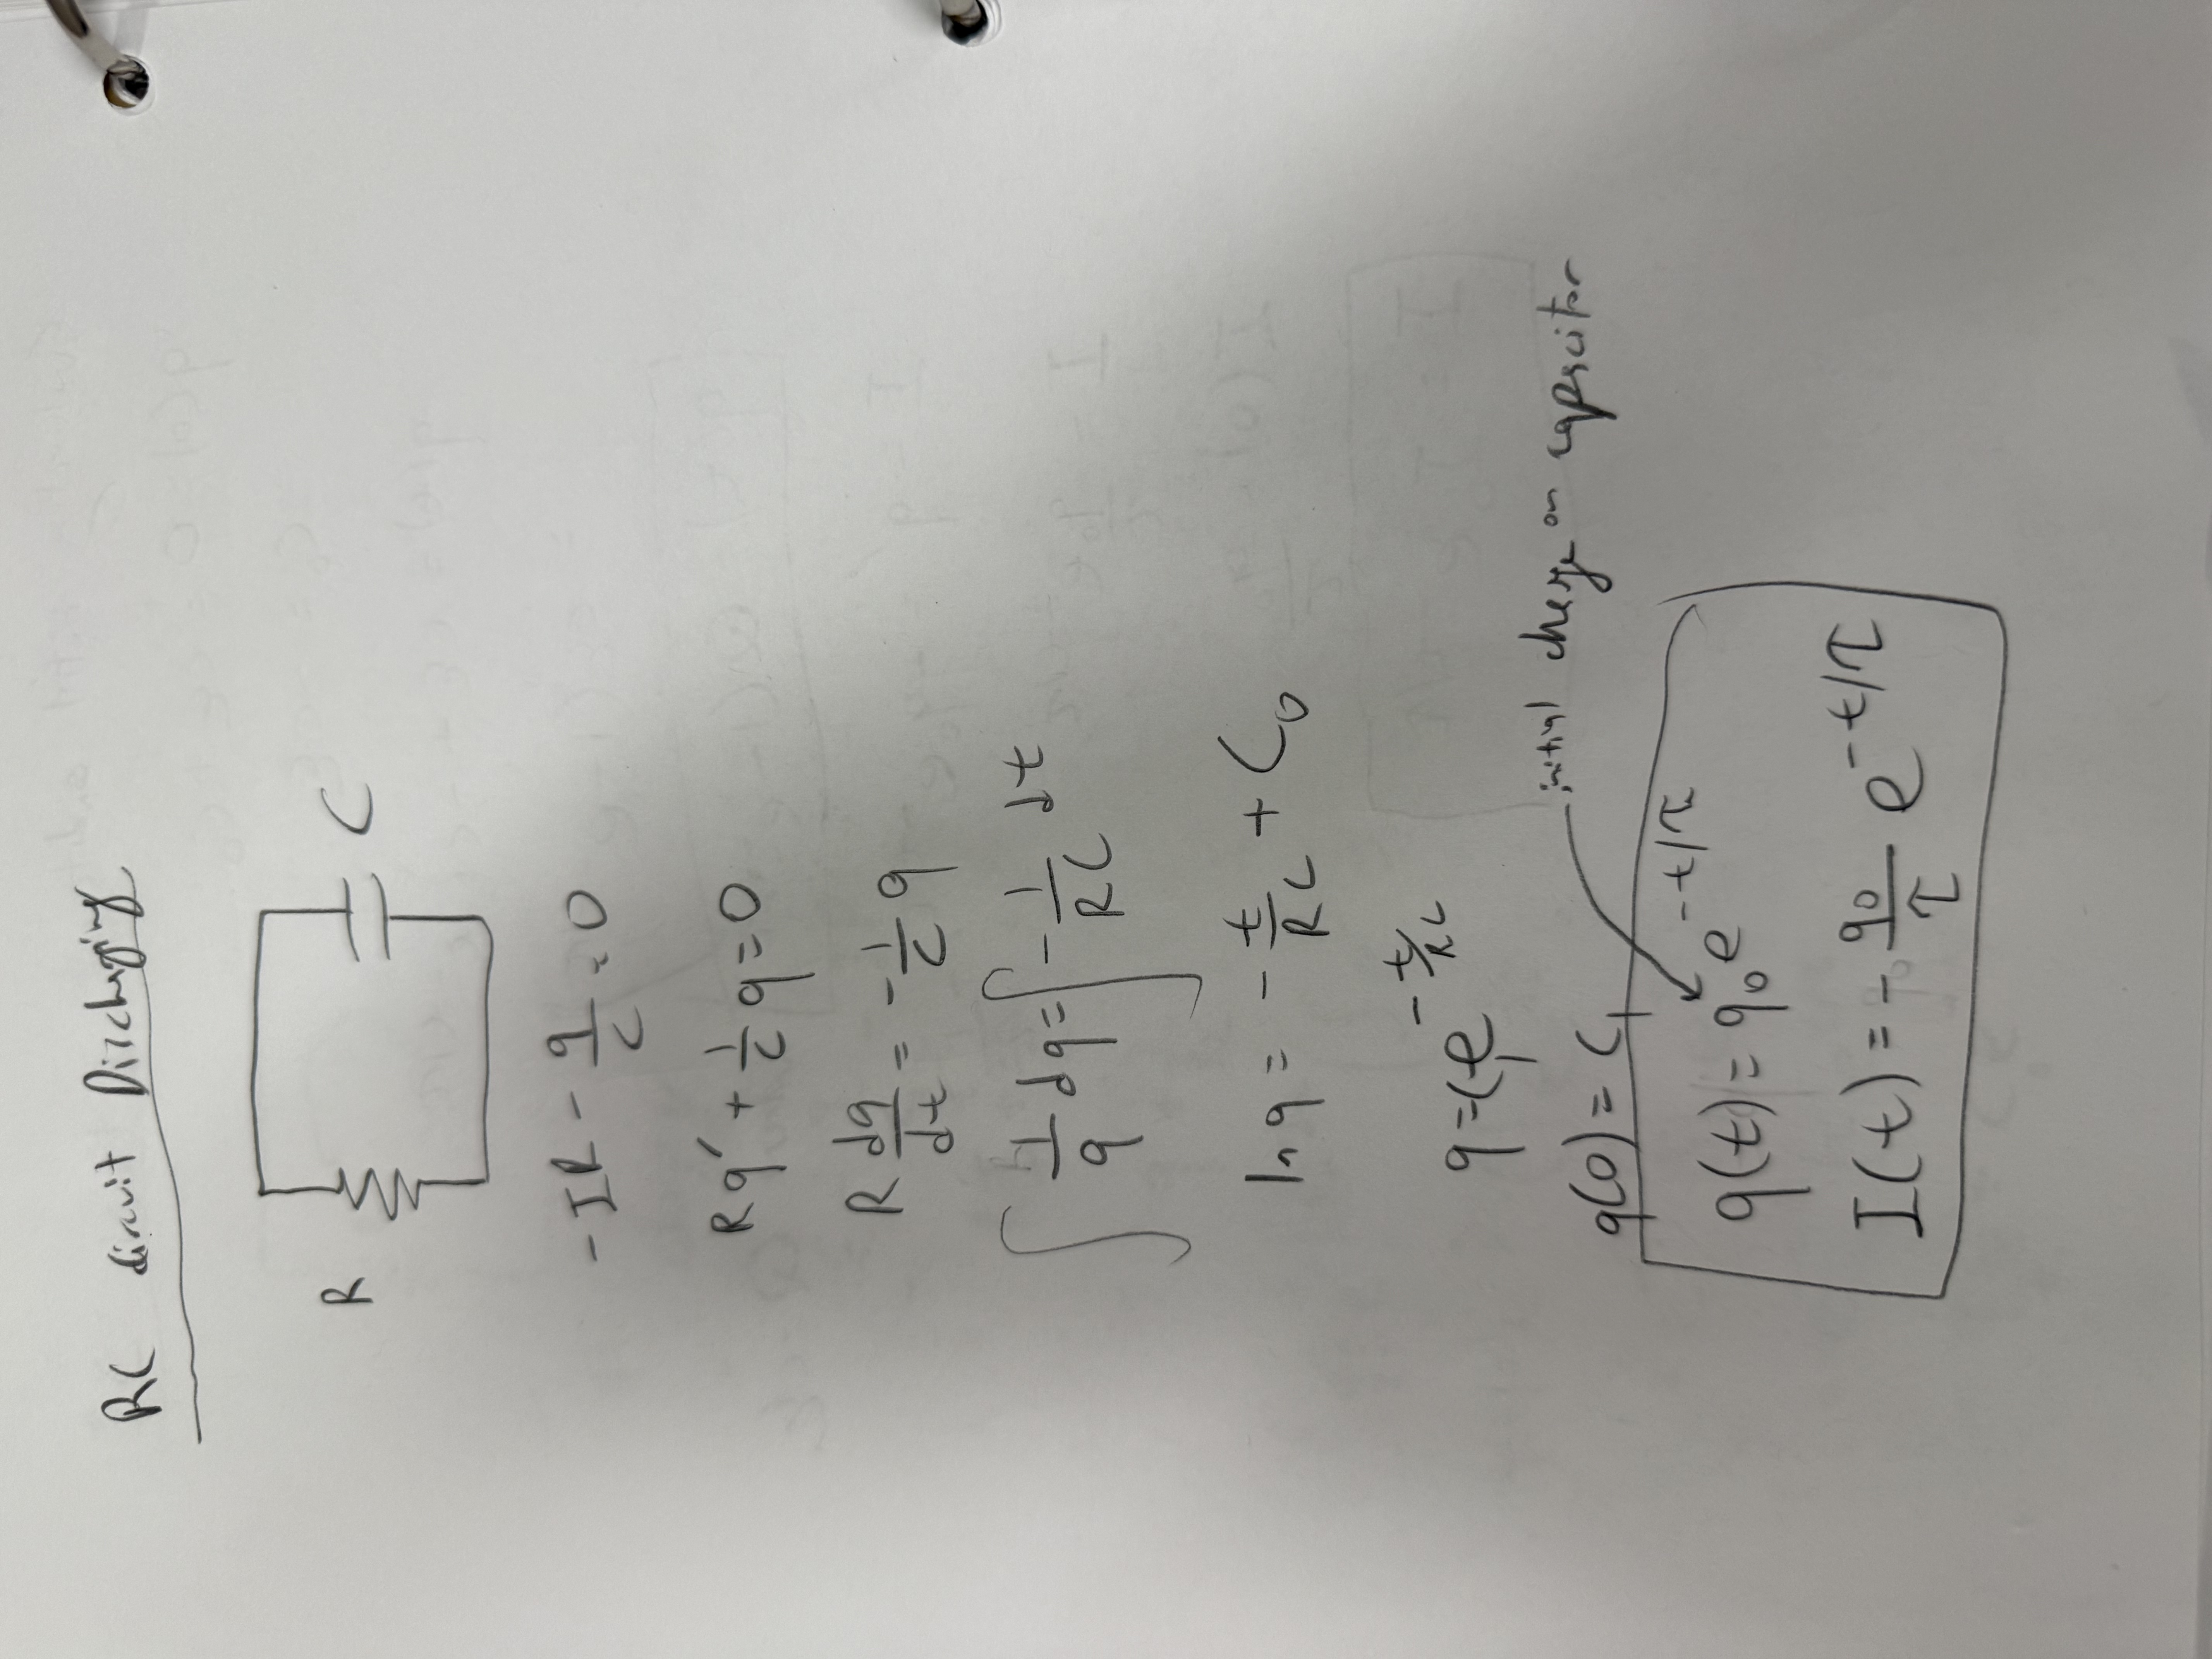 RC circuit Discharging
R C
-IR - q/C = 0
Rq' + 1/C q = 0
R dq/dt = - 1/C q
∫ 1/q dq = ∫ - 1/RC dt
ln q = - t/RC + C₀
q = C₁e^(-t/RC)
q(0) = C₁
initial charge on capacitor
q(t) = q₀e^(-t/τ)
I(t) = - q₀/τ e^(-t/τ)